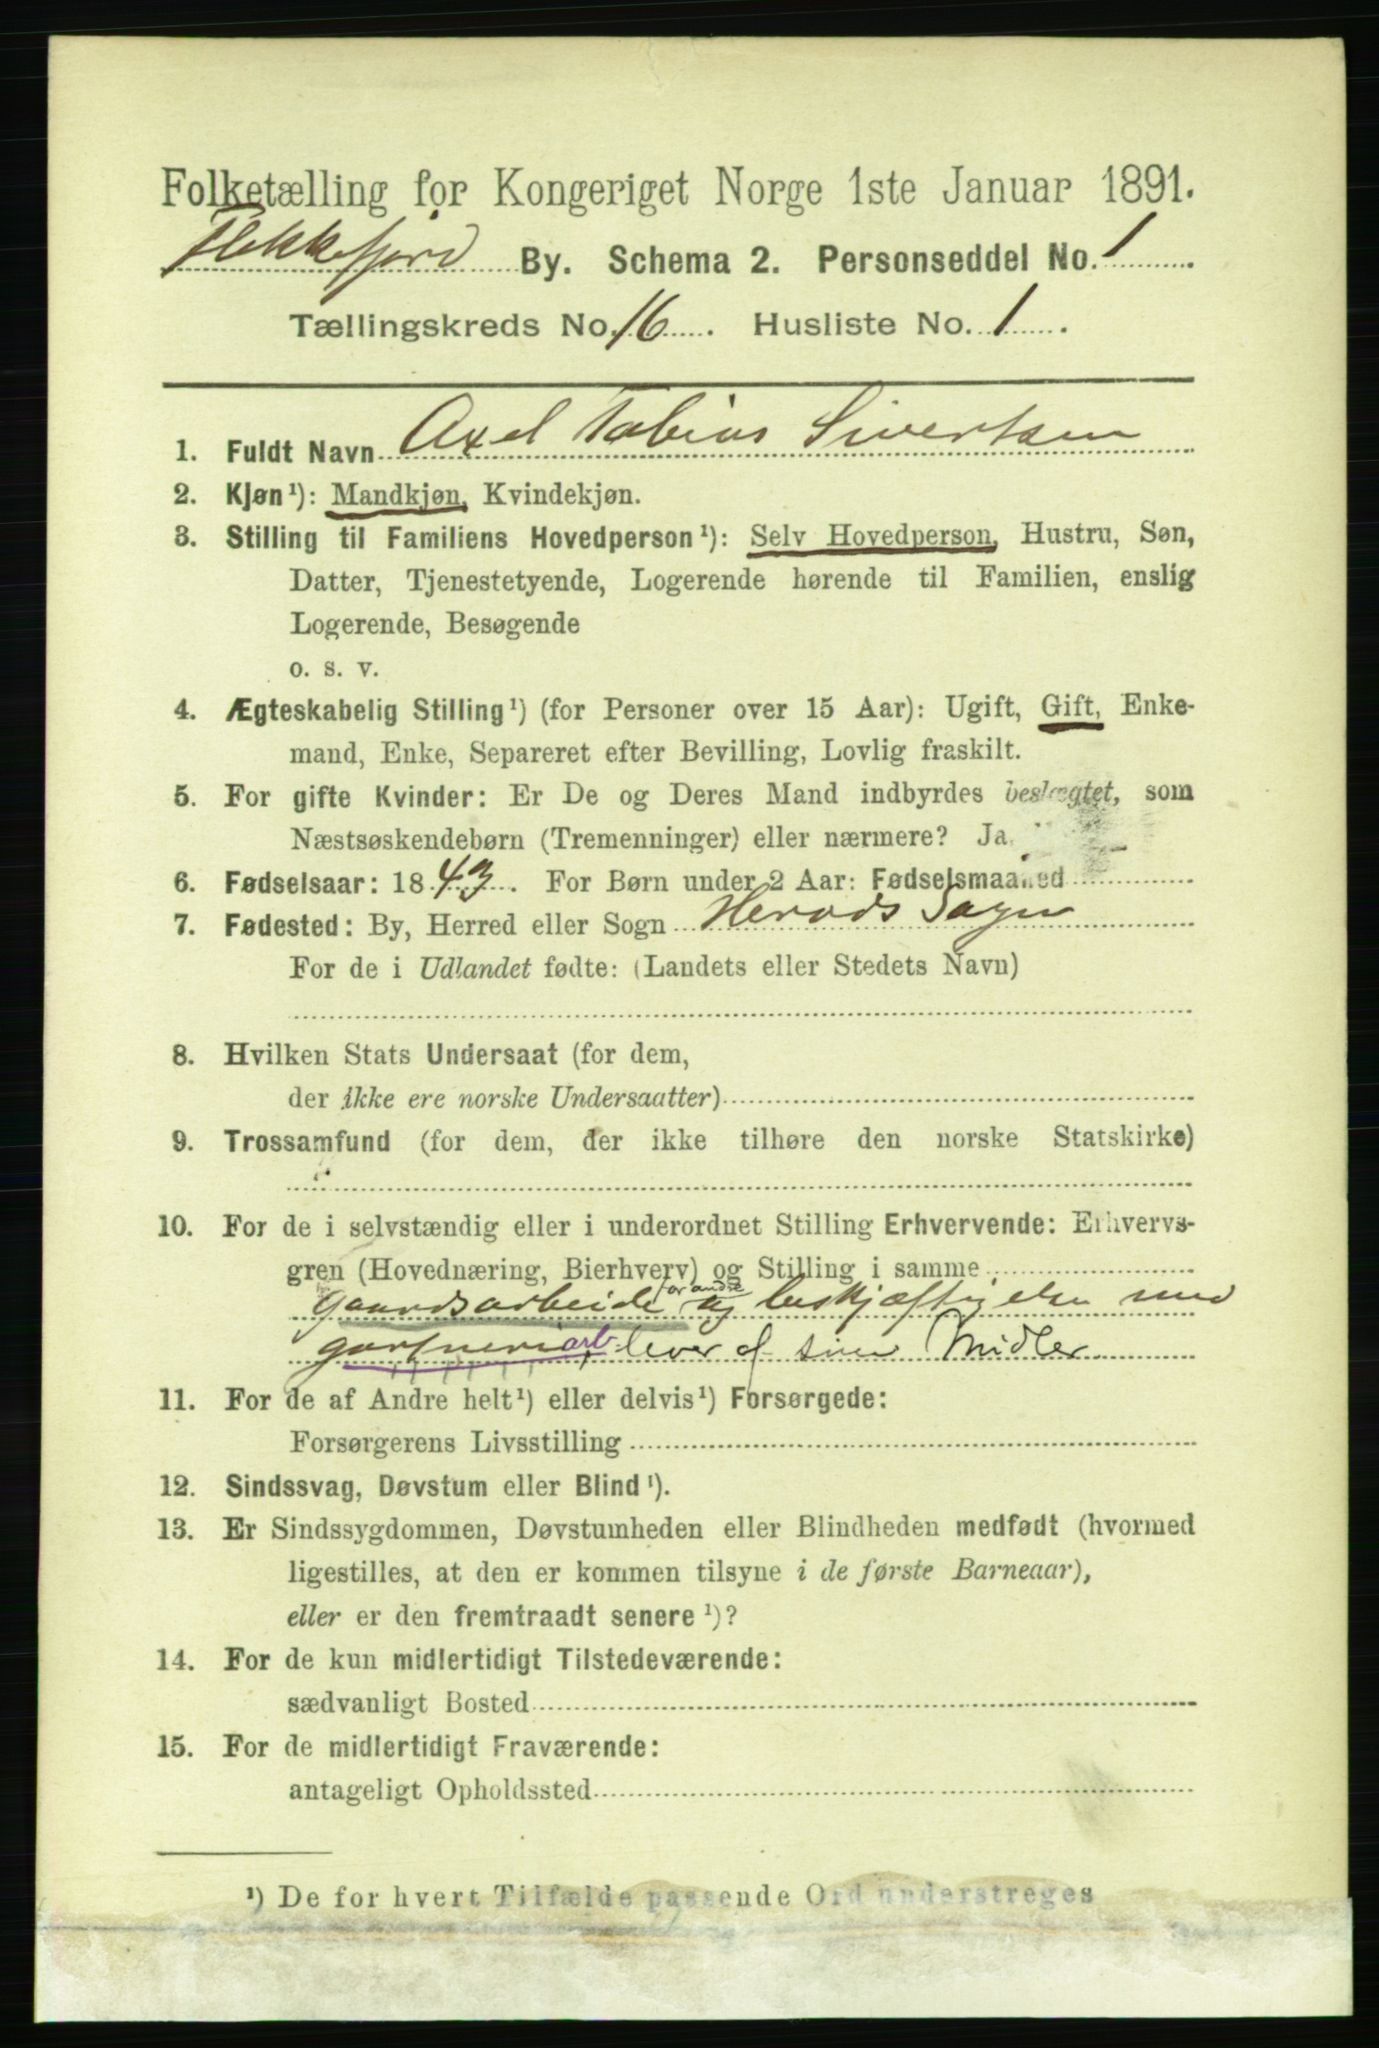 Folketælling for Kongeriget Norge 1ste Januar 1891.
Flekkefjord By. Schema 2. Personseddel No. 1
Tællingskreds No. 16. Husliste No. 1.
1. Fuldt Navn Axel Tobias Sivertsen
2. Kjøn¹): Mandkjøn, Kvindekjøn.
3. Stilling til Familiens Hovedperson¹): Selv Hovedperson, Hustru, Søn,
Datter, Tjenestetyende, Logerende hørende til Familien, enslig
Logerende, Besøgende
o. s. v.
4. Ægteskabelig Stilling¹) (for Personer over 15 Aar): Ugift, Gift, Enke-
mand, Enke, Separeret efter Bevilling, Lovlig fraskilt.
5. For gifte Kvinder: Er De og Deres Mand indbyrdes beslægtet, som
Næstsøskendebørn (Tremenninger) eller nærmere? Ja.
6. Fødselsaar: 1843. For Børn under 2 Aar: Fødselsmaaned
7. Fødested: By, Herred eller Sogn Herads Sogn
For de i Udlandet fødte: (Landets eller Stedets Navn)
8. Hvilken Stats Undersaat (for dem,
der ikke ere norske Undersaatter)
9. Trossamfund (for dem, der ikke tilhøre den norske Statskirke)
10. For de i selvstændig eller i underordnet Stilling Erhvervende: Erhvervs-
gren (Hovednæring, Bierhverv) og Stilling i samme
gaardsarbeide for andre og beskjæftigelse med
gartneriarb. lever af sine Midler
11. For de af Andre helt¹) eller delvis¹) Forsørgede:
Forsørgerens Livsstilling
12. Sindssvag, Døvstum eller Blind¹).
13. Er Sindssygdommen, Døvstumheden eller Blindheden medfødt (hvormed
ligestilles, at den er kommen tilsyne i de første Barneaar),
eller er den fremtraadt senere¹)?
14. For de kun midlertidigt Tilstedeværende:
sædvanligt Bosted
15. For de midlertidigt Fraværende:
antageligt Opholdssted
¹) De for hvert Tilfælde passende Ord understreges